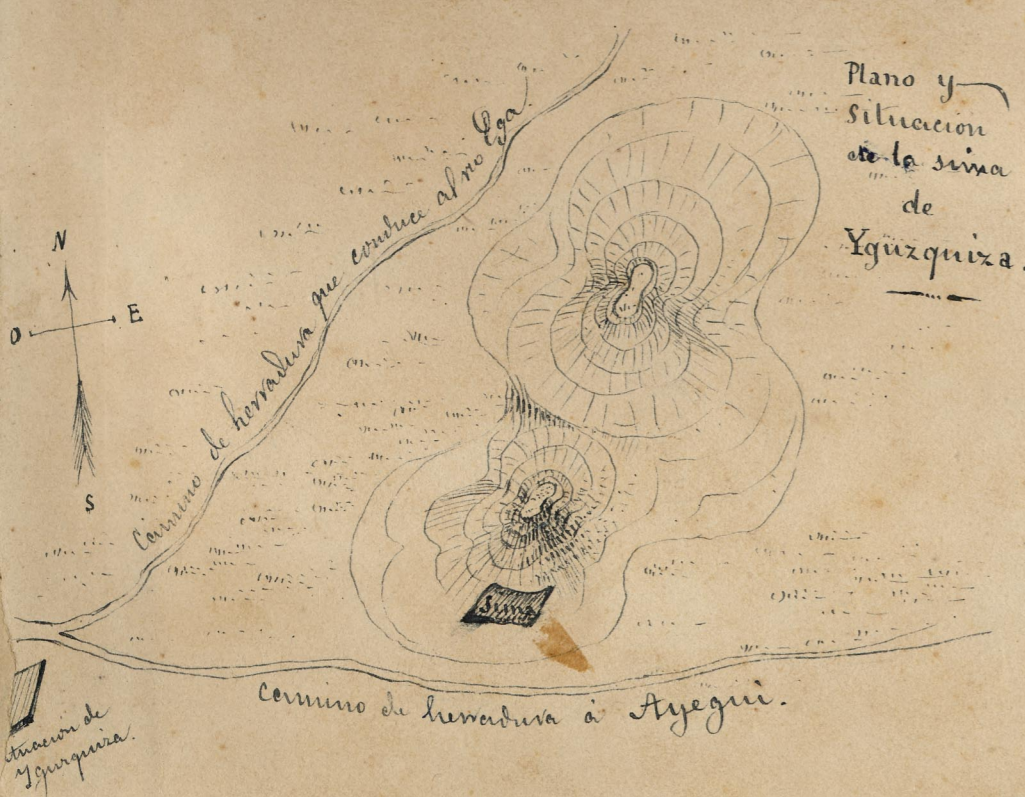 Plano y
Situacion
de la sima
de
Yguzquiza.
Camino de herradura que conduce al rio Ega.
N
O
E
S
Sima
Camino de herradura á Ayegui.
tuacion de
Yguzquiza.